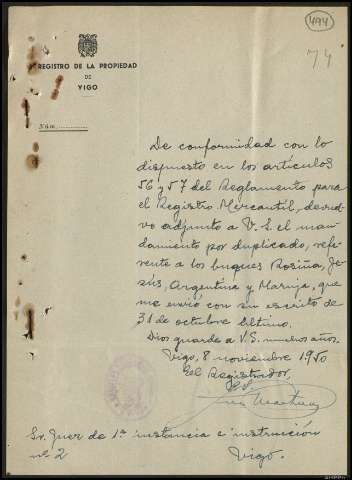 494
74
REGISTRO DE LA PROPIEDAD
DE
VIGO
Núm.
De conformidad con lo
dispuesto en los artículos
56 y 57 del Reglamento para
el Registro Mercantil, devuel-
vo adjunto a V. S. el man-
damiento por duplicado, refe-
rente a los buques Rosiña, Je-
sús, Argentina y Maruja, que
me envió con su escrito de
31 de octubre último.
Dios guarde a V. S. muchos años.
Vigo, 8 noviembre 1950
El Registrador,
Sr. Juez de 1ª instancia e instrucción
nº 2 Vigo.